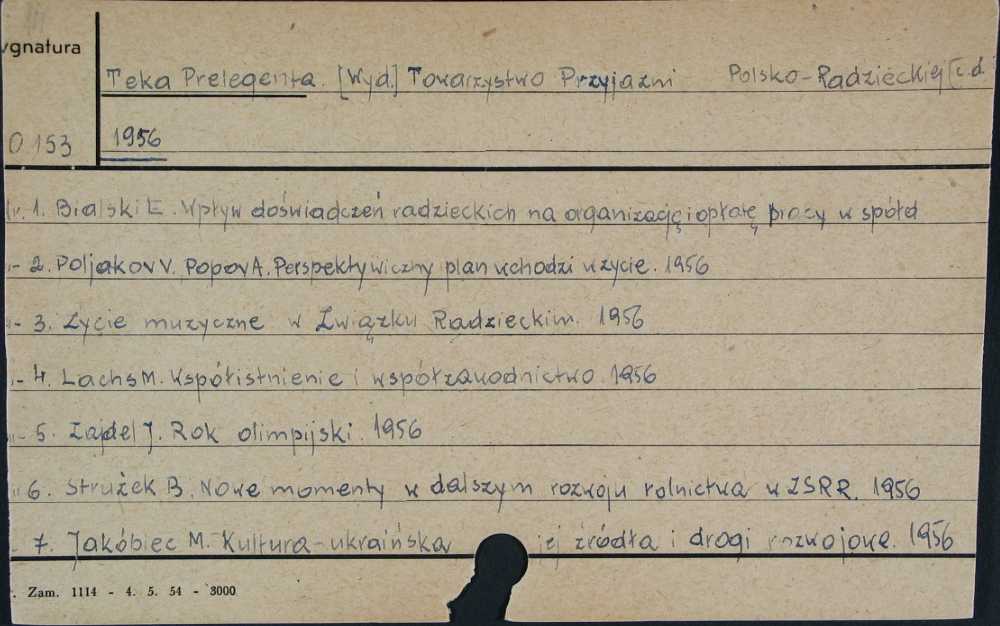 ygnatura
Teka Prelegenta. [Wyd.] Towarzystwo Przyjaźni Polsko-Radzieckiej [c.d.
0.153 1956
1. Bialski E. Wpływ doświadczeń radzieckich na organizację i opłatę pracy w spółd
- 2. Poljakov V. Popov A. Perspektywiczny plan wchodzi w życie. 1956
- 3. Życie muzyczne w Związku Radzieckim. 1956
- 4. Lachs M. Współistnienie i współzawodnictwo. 1956
- 5. Zajdel J. Rok olimpijski. 1956
" 6. Strużek B. Nowe momenty w dalszym rozwoju rolnictwa w ZSRR. 1956
- 7. Jakóbiec M. Kultura-ukraińska jej źródła i drogi rozwojowe. 1956
. Zam. 1114 - 4. 5. 54 - 3000